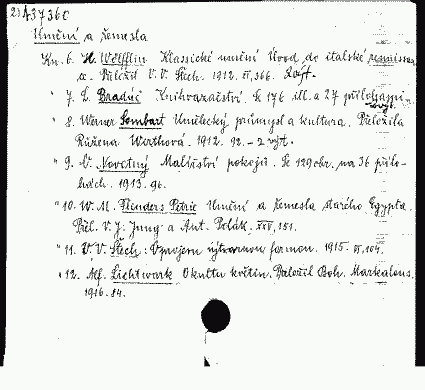 2) A3736c
Umění a řemesla
Kn. 6. H. Wölfflin Klassické umění Úvod do italské renaissance
. Přeložil V.V. Štech. 1912. VI, 366.
" 7. L. Bradáč Knihvazačství. Se 176 ill. a 27 přílohami
" 8. Werner Sombart Umělecký průmysl a kultura. Přeložila
Růžena Wirthová. 1912. 92. – 2 výt.
" 9. V. Novotný Malířství pokojů. Se 129 obr. na 36 přílo-
hách. 1913. 96.
" 10. W. M. Flinders Petrie Umění a řemesla starého Egypta
Přel. V. J. Jung a Ant. Polák. XXV, 151.
" 11. V. V. Štech: O projevu výtvarnou formou. 1915. VI, 104.
" 12. Alf. Lichtwark O kultu květin. Přeložil Boh. Markalous.
1916. 84.